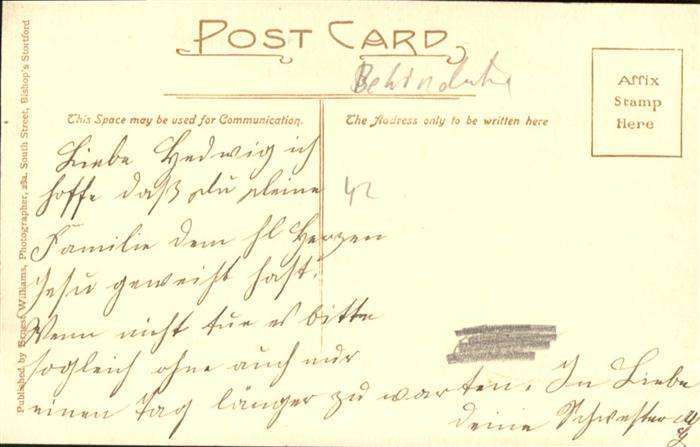 POST CARD
Affix
Stamp
Here
This Space may be used for Communication.
The Address only to be written here
Liebe Hedwig ich
hoffe daß du deine
42
Familie dem hl Herzen
Jesu geweiht hast.
Wenn nicht tue es bitte
sogleich ohne auch nur
einen Tag länger zu warten. In Liebe
deine Schwester
Published by Ernest Williams, Photographer, 23a. South Street, Bishop's Stortford